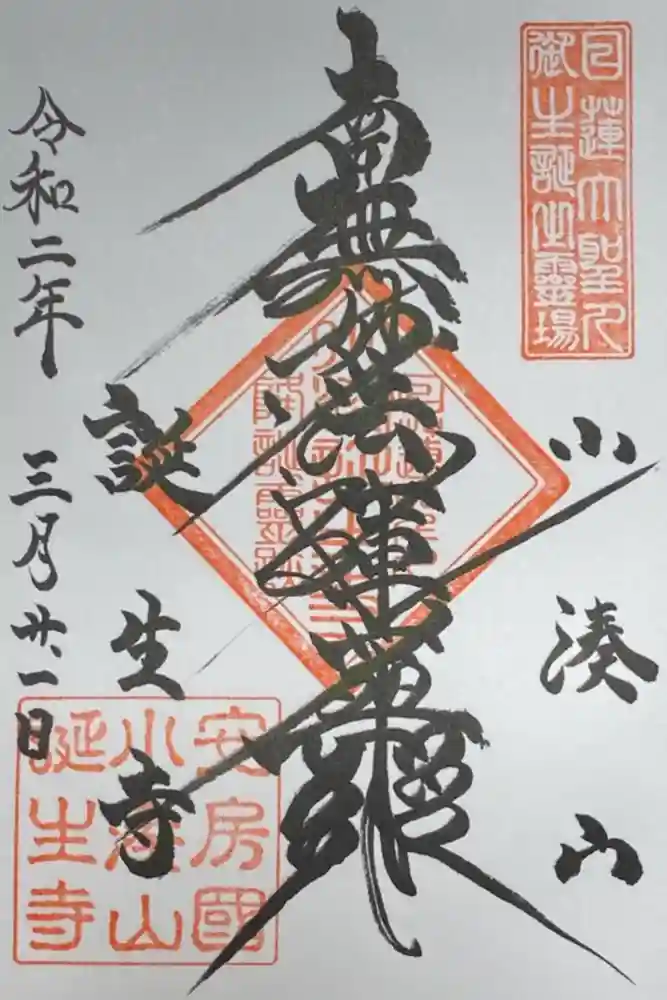 日蓮大聖人
御生誕生靈場
小湊山
南無妙法蓮華經
誕生寺
令和二年 三月廿一日
安房國
小湊山
誕生寺